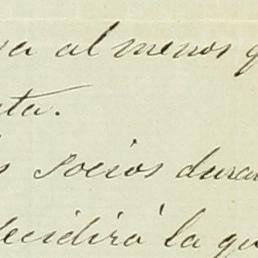 va al menos q
ta.
s socios dura
decidirá la qu